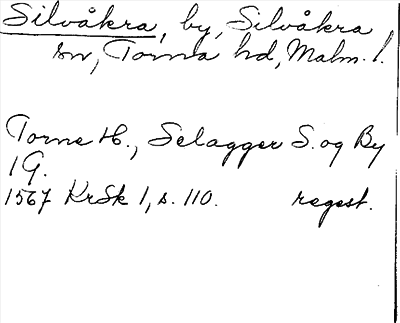 Silvåkra, by, Silvåkra
sn, Torna hd, Malm. l.
Torne H., Selagger S. og By
1 G.
1567 KrSk 1, s. 110. regest.